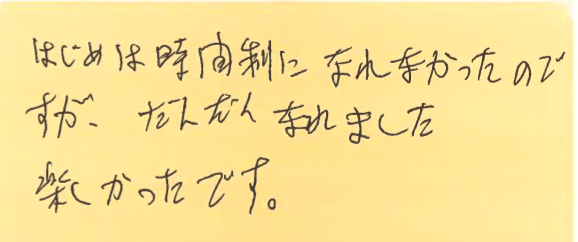 はじめは時間制になれなかったので
すが、だんだんなれました
楽しかったです。